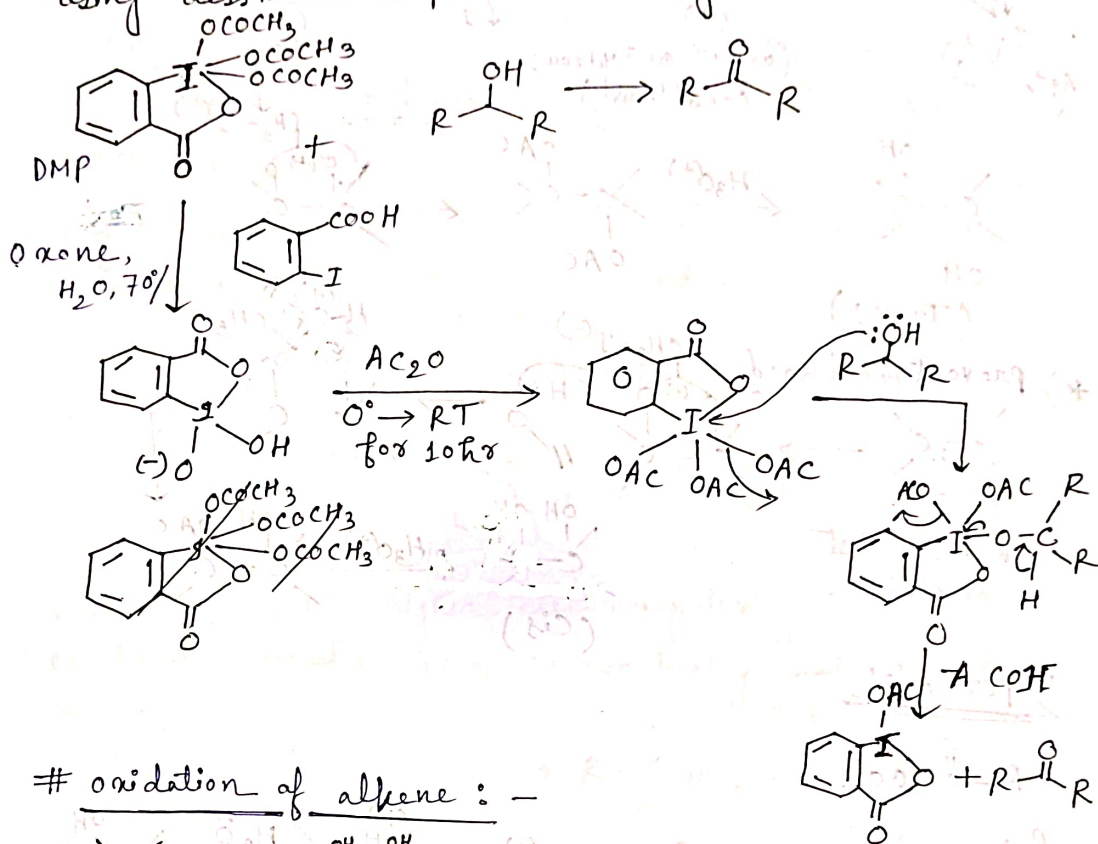 OCOCH3
OCOCH3
I OCOCH3
O
O
DMP
+
OH
R R
O
R R
COOH
I
Oxone,
H2O, 70°/
O
O
I
OH
(-) O
Ac2O
0° → RT
for 10hr
O
O
O
I
OAC OAC OAC
:ÖH
R R
OCOCH3
OCOCH3
OCOCH3
O
O
ACO OAC R
I O C R
O H
O
OAC
I
O
O
+ R R
O
# oxidation of alkene : -
OH OH